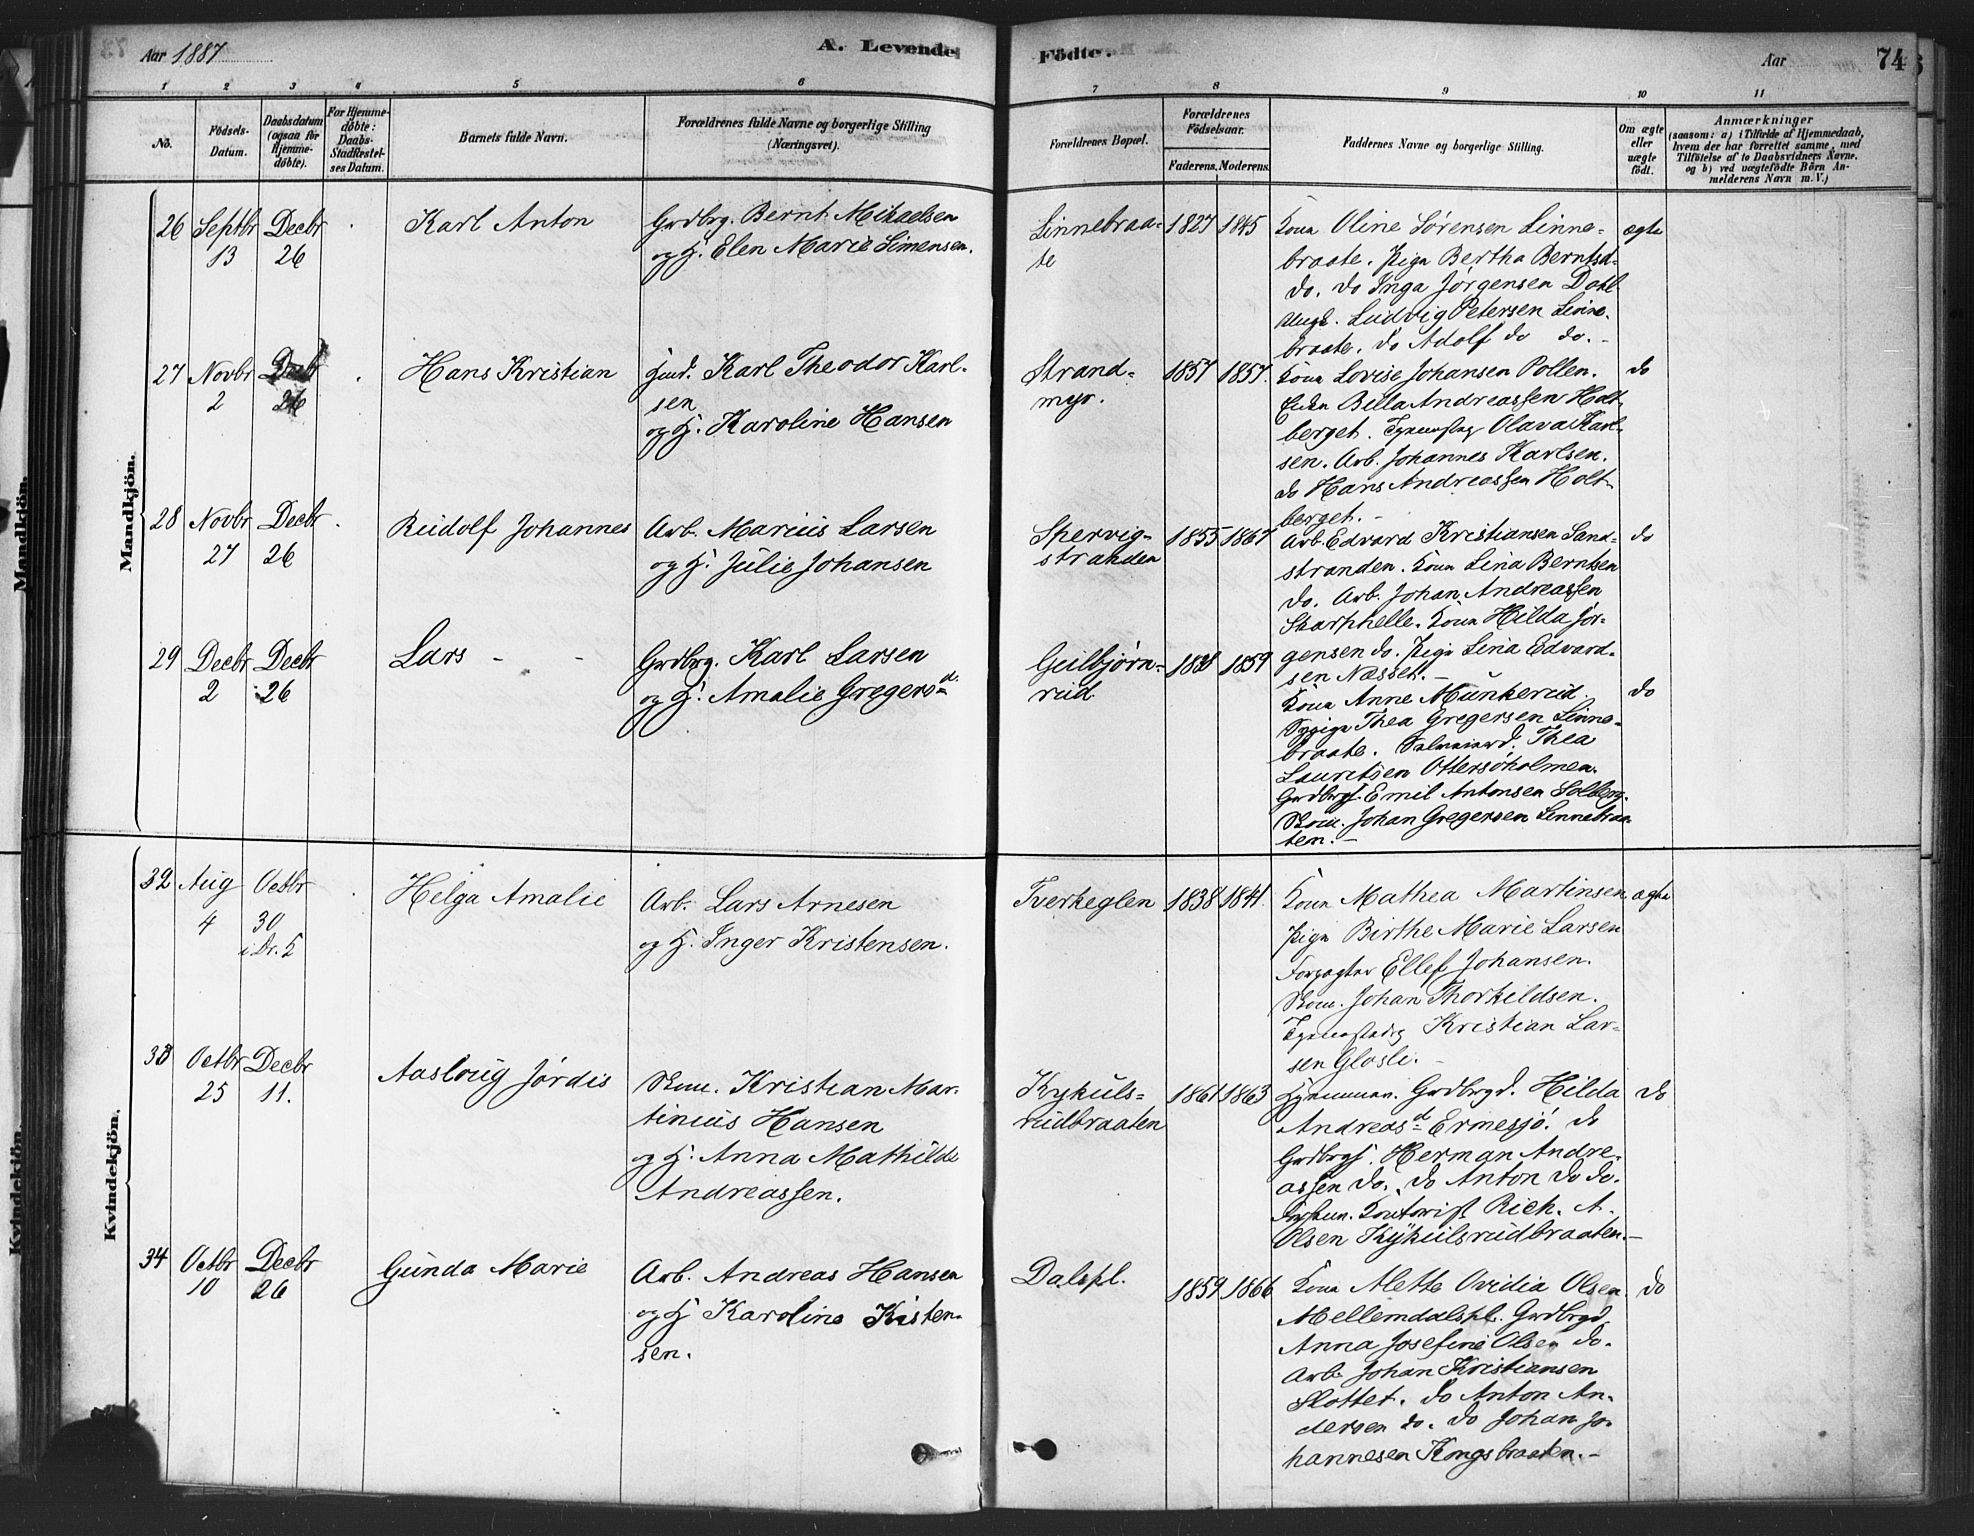 Aar 1887
A. Levende
Födte.
Aar
74
1 2 3 4 5 6 7 8 9 10 11
No.
Födsels-
Datum.
Daabsdatum
(ogsaa for
Hjemme-
döbte).
For Hjemme-
döbte:
Daabs-
Stadfæstel-
ses Datum.
Barnets fulde Navn.
Forældrenes fulde Navne og borgerlige Stilling
(Næringsvei).
Forældrenes Bopæl.
Forældrenes
Födselsaar.
Faderens. Moderens.
Faddernes Navne og borgerlige Stilling.
Om ægte
eller
uægte
födt.
Anmærkninger
(saasom: a) i Tilfælde af Hjemmedaab,
hvem der har forrettet samme, med
Tilföielse af to Daabsvidners Navne.
og b) ved uægtefödte Börn An-
melderens Navn m. V.)
Mandkjön.
26 Septbr Decbr
13 26
Karl Anton
Grdbrg. Bernt Mikaelsen
og H. Elen Marie Simensen.
Linnebraa-
te
1827 1845
Kona Oline Sørensen Linne-
braate. Pige Bertha Berntsd-
do. do Inga Jørgensen Dahl
Ungk. Ludvig Petersen Linne-
braate. do Adolf do do.-
ægte
27 Novbr Decbr
2 26
Hans Kristian
Karl Theodor Karl-
sen
og H. Karoline Hansen
Strand-
myr.
1857 1857.
Kona Lovise Johansen Pollen.
Enke Bella Andreassen Holt-
berget. Olava Karl-
sen. Arb. Johannes Karlsen.
do Hans Andreassen Holt-
berget.-
do
28 Novbr Decbr
27 26
Rudolf Johannes
Arb. Marius Larsen
og H. Julie Johansen
Spervig-
stranden
1855 1867
Arb. Edvard Kristiansen Sand-
stranden. Kona Lina Berntsen
do. Arb. Johan Andreassen
Skarphelle. Kona Hilda Jør-
gensen do. Pige Lina Edvard-
sen Næsset.-
do
29 Decbr Decbr
2 26
Lars - -
Grdbrg. Karl Larsen
og H. Amalie Gregersd.
Geilbjørn-
rud
1859
Kona Anne Munkerud.
Thea Gregersen Linne-
braate. Thea
Lauritsen Ottersøholmen.
Grdbrgs. Emil Antonsen Solberg.
Skom. Johan Gregersen Linnebraa-
ten.-
do
Kvindekjön.
32 Aug Octbr
4 30
i Dr. 5
Helga Amalie
Arb. Lars Arnesen
og H. Inger Kristensen.
Tverkeglen
1838 1841.
Kona Mathea Martinsen
Pige Birthe Marie Larsen
Forpagter Ellef Johansen.
Skom. Johan Thorkildsen.
Kristian Lar-
sen Glosli.-
ægte
33 Octbr Decbr
25 11.
Aasloug Jørdis
Skom. Kristian Mar-
tinius Hansen
og H. Anna Mathilde
Andreassen.
Kykuls-
rudbraaten
1861 1863
Grdbrgd. Hilda
Andreasd. Ermesjø. do
Grdbrgs. Herman Andre-
assen do. do Anton do do.
Kontorist Rich. A.
Olsen Kykulsrudbraaten.-
do
34 Octbr Decbr
10 26
Gunda Marie
Arb. Andreas Hansen
og H Karoline Kisten-
sen.
Dalspl.
1859 1866
Kona Alette Ovidia Olsen.
Mellemdalspl. Grdbrgd.
Anna Josefine Olsen do.
Arb. Johan Kristiansen
Slottet. do Anton An-
dersen do. do Johan Jo-
hannesen Kongsbraaten.-
do
Mandkjön.
Kvindekjön.